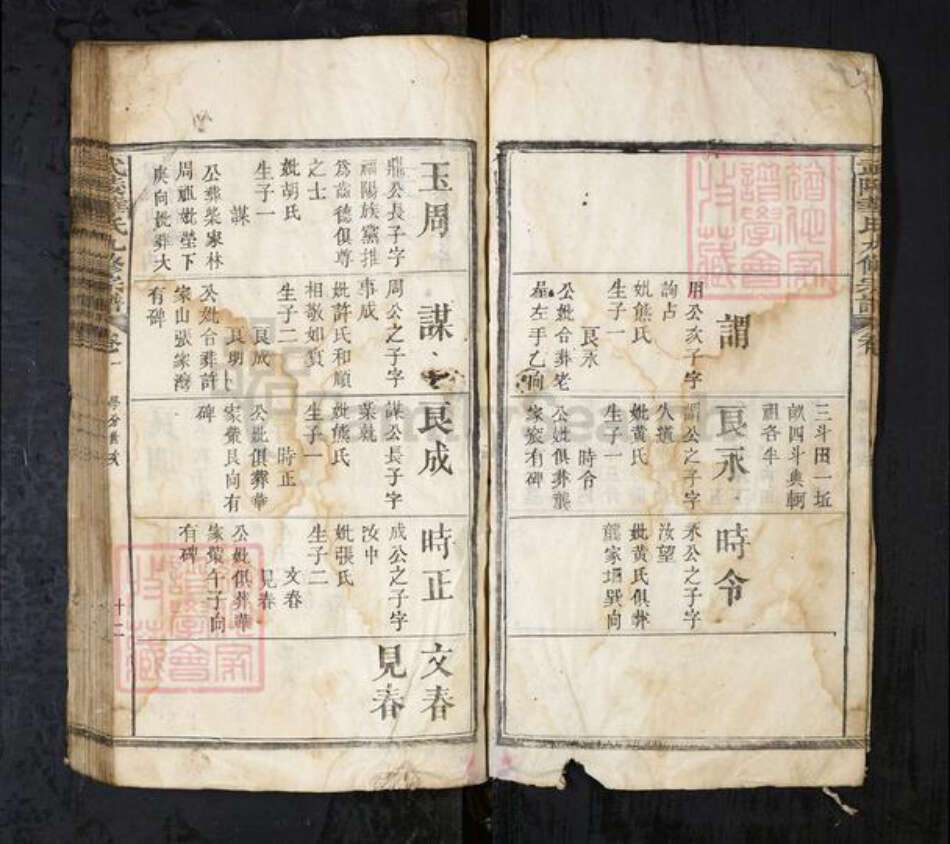 三斗田一坵
畝四斗與軻
祖各半
謂
用公次子字
詢占
妣熊氏
生子一
良永
公妣合葬老
屋左手乙向
良永
謂公之子字
久道
妣黃氏
生子一
時令
公妣俱葬龔
家窊有碑
時令
永公之子字
汝望
妣黃氏俱葬
龍家壠巽向
玉周
鼎公長子字
福陽族黨推
為齒德俱尊
之士
妣胡氏
生子一
謀
公葬柴家林
周祖妣塋下
庚向妣葬大
謀
周公之子字
事成
妣許氏和順
相敬如賓
生子二
良成
良明
公妣合葬許
家山張家灣
有碑
良成
謀公長子字
業兢
妣熊氏
生子一
時正
公妣俱葬華
家𡒃艮向有
碑
時正
成公之子字
汝中
妣張氏
生子二
文春
見春
公妣俱葬華
家𡒃午子向
有碑
文春
見春
九修宗譜
卷一
十二